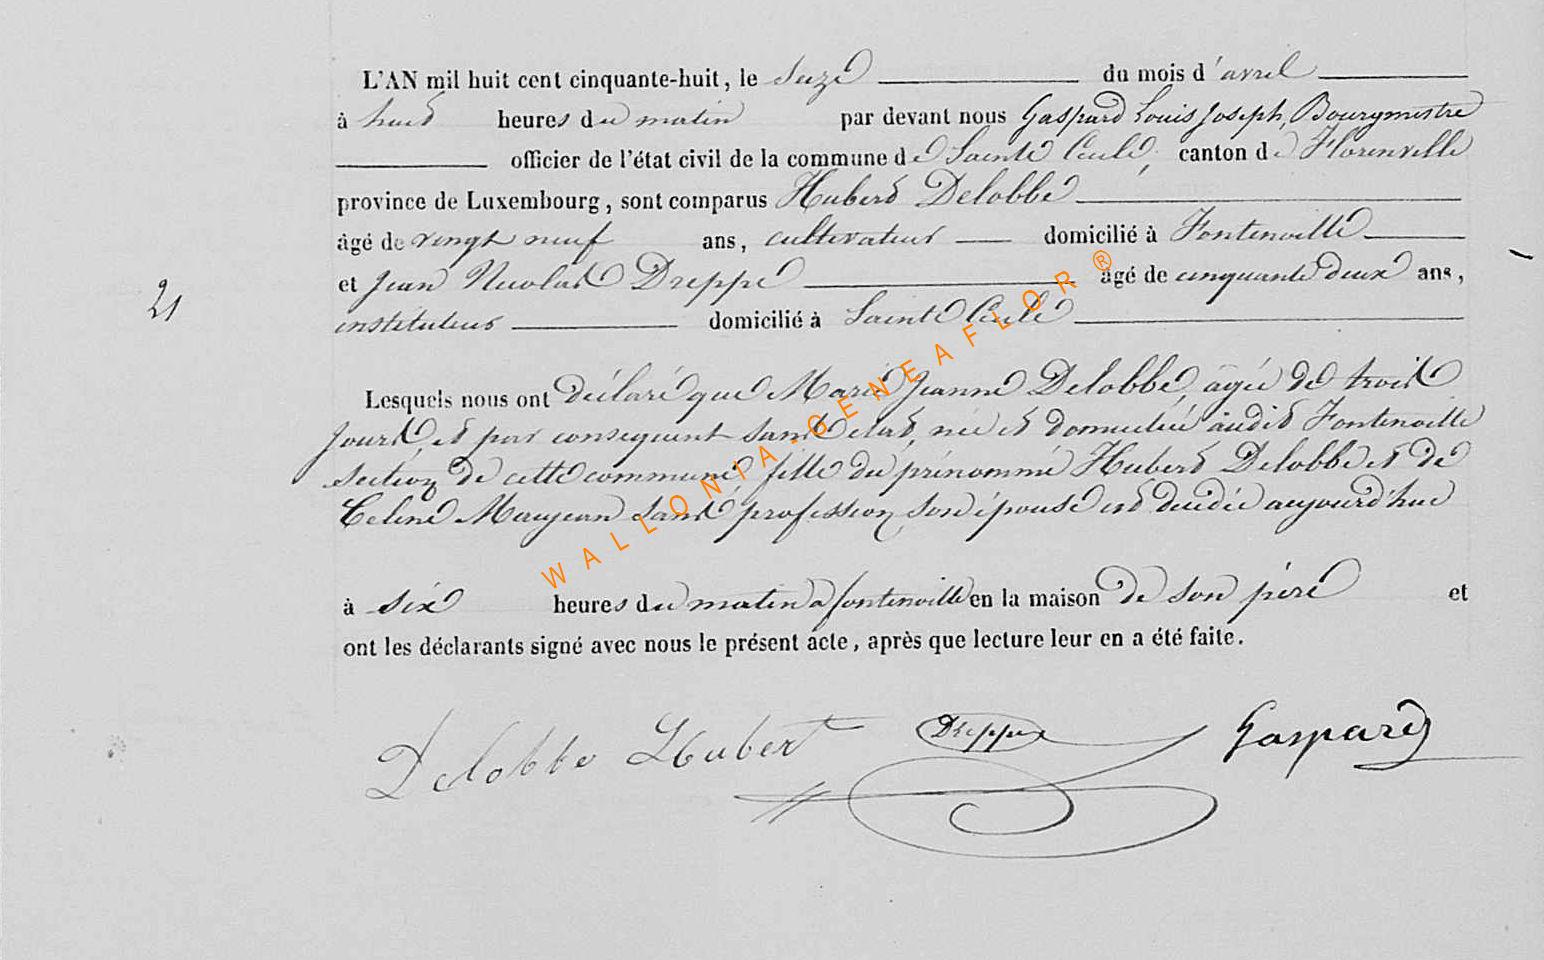 L'AN mil huit cent cinquante-huit, le seize du mois d'avril
à huit heures du matin par devant nous Gaspard Louis Joseph, Bourgmestre
officier de l'état civil de la commune de Sainte Cécile, canton de Florenville
province de Luxembourg, sont comparus Hubert Delobbe
âgé de vingt neuf ans, cultivateur domicilié à Fontenoille
21
et Jean Nicolas Dreppe âgé de cinquante deux ans,
instituteur domicilié à Sainte Cécile
Lesquels nous ont déclaré que Marie Jeanne Delobbe, âgée de trois
jours, et par conséquent sans état, née et domiciliée audit Fontenoille
section de cette commune, fille du prénommé Hubert Delobbe et de
Celine Maujean sans profession, son épouse est décédée aujourd'hui
à six heures du matin à fontenoille en la maison de son père et
ont les déclarants signé avec nous le présent acte, après que lecture leur en a été faite.
Delobbe Hubert Dreppe Gaspard
WALLONIA-GENEAFLOR®